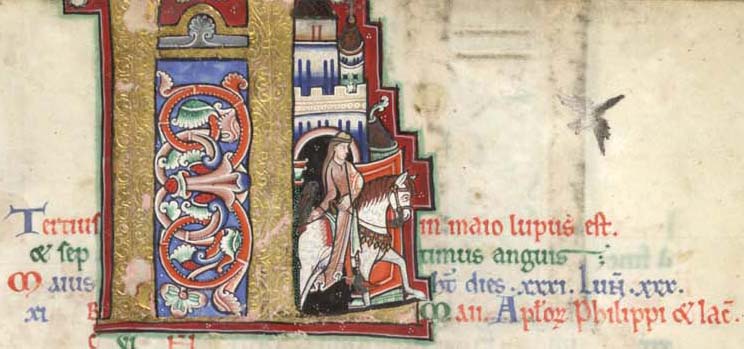 Tertius in maio lupus est.
& sep timus anguis
Maius ht dies .xxxi. Lun .xxx.
xi B Maii. Aplor Philippi & Iac.